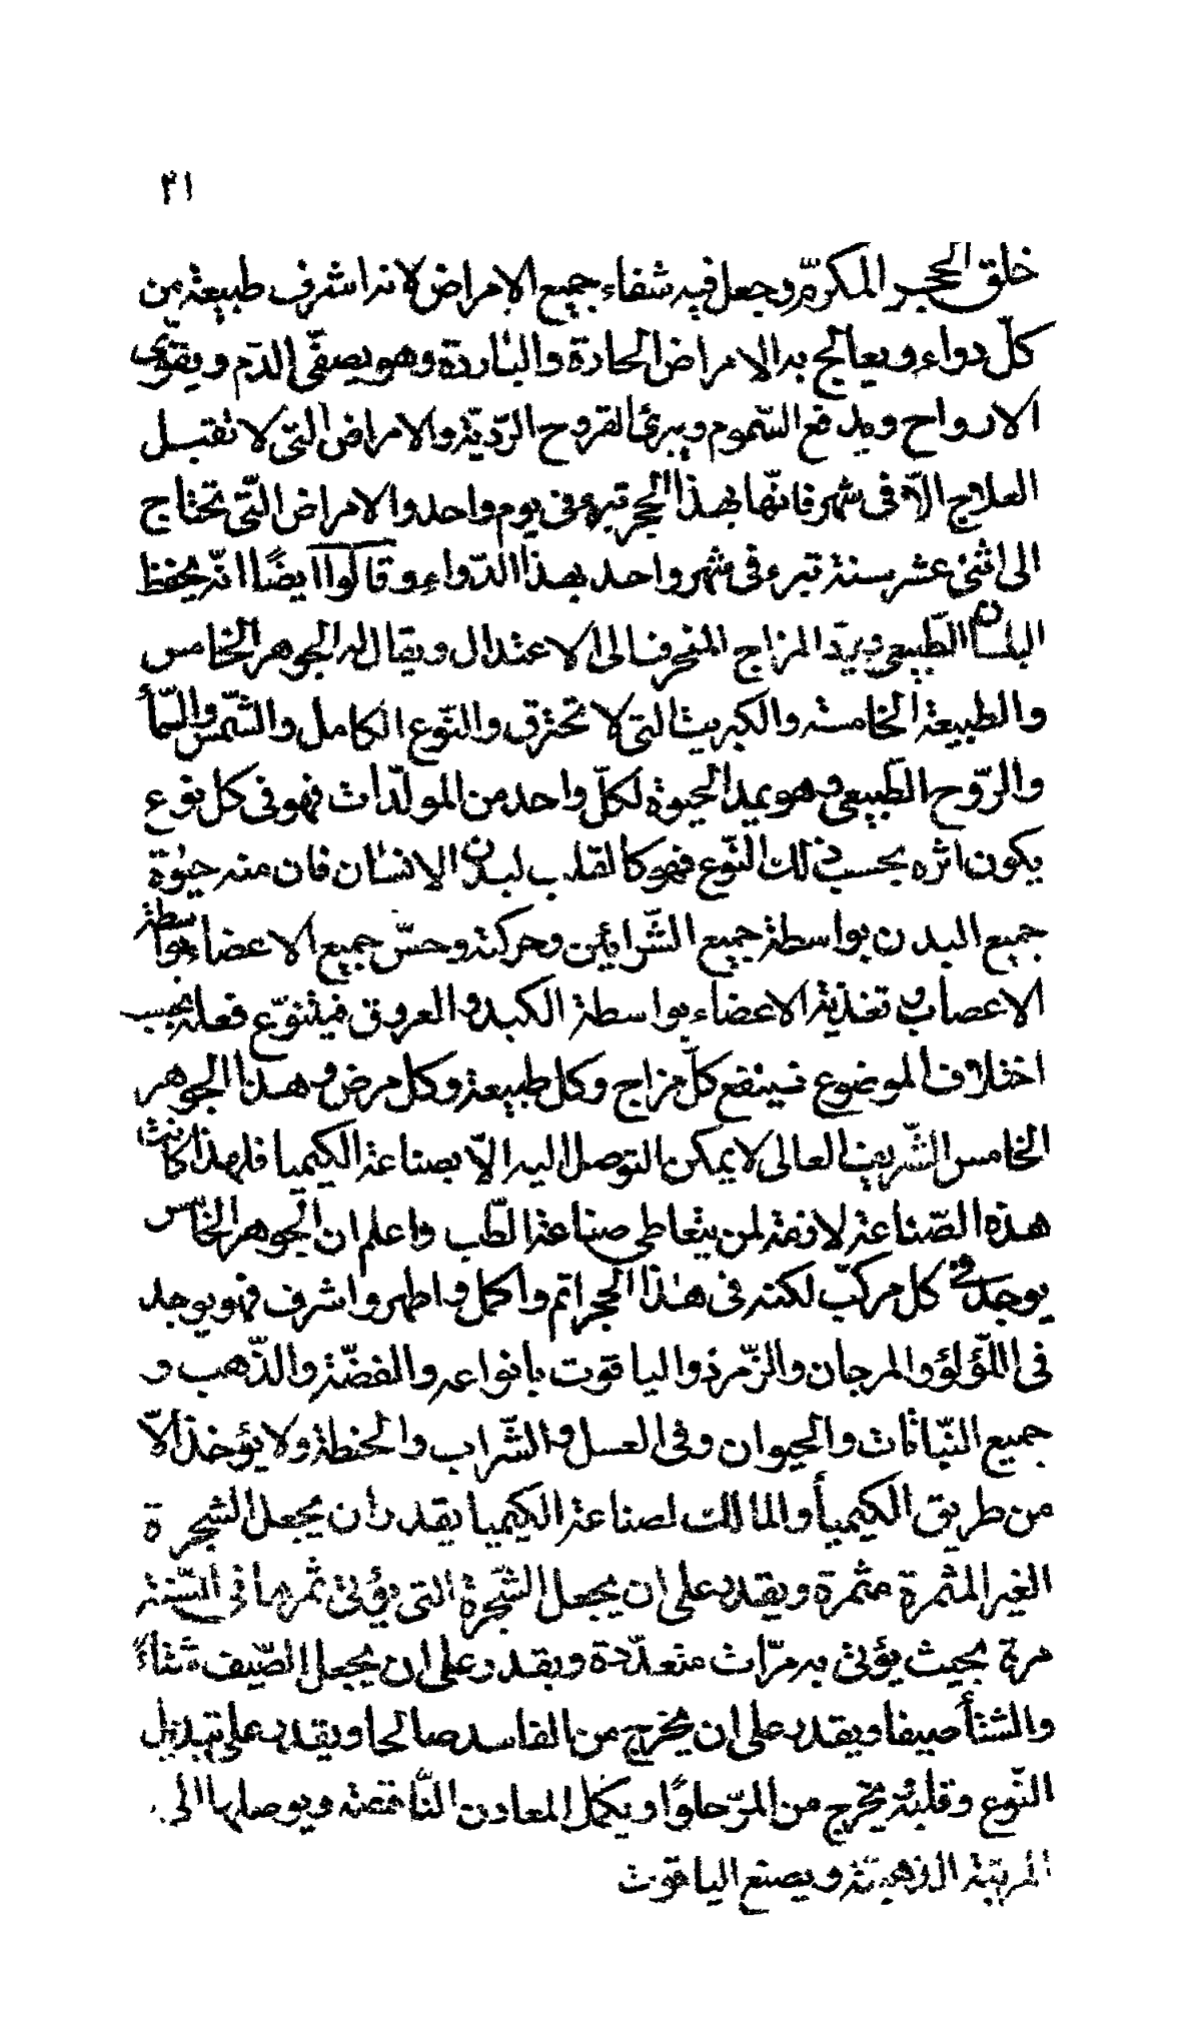 ٢١
خلق الحجر المكرّم وجعل فيه شفاء جميع الامراض لانه اشرف طبيعة من
كلّ دواء ويعالج به الامراض الحادة والباردة وهو يصفّى الدّم ويقوّى
الارواح ويدفع السّموم ويبرئ القروح الرّديّة والامراض التى لا تقبل
العلاج الاّ فى شهر فانّها بهذا الحجر تبرء فى يوم واحد والامراض التّى تحتاج
الى اثنى عشر سنة تبرء فى شهر واحد بهذا الدّواء وقالوا ايضًا انّه يحفظ
البلسان الطّبيعى ويردّ المزاج المنحرف الى الاعتدال ويقال له الجوهر الخامس
والطبيعة الخامسة والكبريت التى لا تحترق والنّوع الكامل والشّمس والسّمأ
والرّوح الطّبيعى وهو يمد الحيوة لكلّ واحد من المولّدات فهو فى كل نوع
يكون اثره بحسب ذلك النّوع فهو كالقلب لبدن الانسان فان منه حيٰوة
جميع البدن بواسطة جميع الشّرائين وحركته وحسّ جميع الاعضاء بواسطة
الاعصاب وتغذية الاعضاء بواسطة الكبد والعروق فيتنوّع فعله بحسب
اختلاف الموضوع فينفع كلّ مزاج وكل طبيعة وكل مرض وهذا الجوهر
الخامس الشّريف العالى لا يمكن التوصل اليه الاّ بصناعة الكيميا فلهذا كانت
هذه الصّناعة لازمة لمن يتعاطى صناعة الطّب واعلم ان الجوهر الخامس
يوجد فى كل مركّب لكنه فى هٰذا الحجر اتم واكمل واطهر واشرف فهو يوجد
فى اللّؤلؤ والمرجان والزّمرد والياقوت بانواعه والفضّة والذّهب و
جميع النّباتات والحيوان وفى العسل والشّراب والحنطة ولا يؤخذ الاّ
من طريق الكيميأ والمالك لصناعة الكيميا يقدر ان يجعل الشجرة
الغير المثمرة مثمرة ويقدر على ان يجعل الشّجرة التى يؤتى ثمرها فى السّنة
مرة بحيث يؤتى به مرّات متعدّدة ويقدر على ان يجعل الصّيف شتاءً
والشتأ صيفا ويقدر على ان يخرج من الفاسد صالحا ويقدر على تبديل
النّوع وقلبه يخرج من المرّ حلوًا ويكمل المعادن النّاقصة ويوصلها الى
المرتبة الذهبيّة ويصنع الياقوت